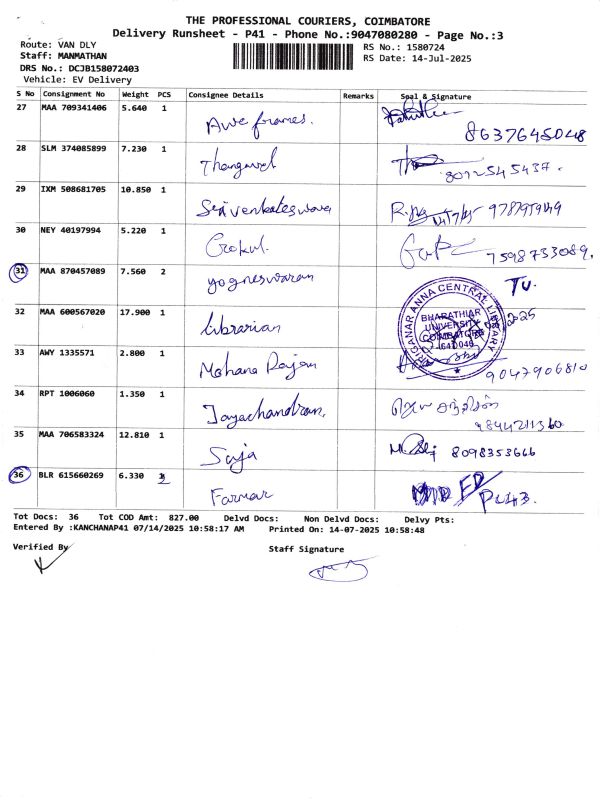 THE PROFESSIONAL COURIERS, COIMBATORE
Delivery Runsheet - P41 - Phone No.:9047080280 - Page No.:3
Route: VAN DLY
RS No.: 1580724
Staff: MANMATHAN
RS Date: 14-Jul-2025
DRS No.: DCJB158072403
Vehicle: EV Delivery
S No Consignment No Weight PCS Consignee Details Remarks Seal & Signature
27 MAA 709341406 5.640 1 Awe frames. 8637645048
28 SLM 374085899 7.230 1 Thangavel
29 IXM 508681705 10.850 1 Sri venkateswara
30 NEY 40197994 5.220 1 Gokul. 7598733089.
31 MAA 870457089 7.560 2 yogneswaran
32 MAA 600567020 17.900 1 librarian
ARIGNAR ANNA CENTRAL LIBRARY
BHARATHIAR
UNIVERSITY
COIMBATORE
641046
33 AWY 1335571 2.800 1 Mohana Rajan 9047906810
34 RPT 1006060 1.350 1 Jayachandran. 9844211360
35 MAA 706583324 12.810 1 Suja 8098353666
36 BLR 615660269 6.330 Farmar
Tot Docs: 36 Tot COD Amt: 827.00 Delvd Docs: Non Delvd Docs: Delvy Pts:
Entered By :KANCHANAP41 07/14/2025 10:58:17 AM Printed On: 14-07-2025 10:58:48
Verified By
Staff Signature